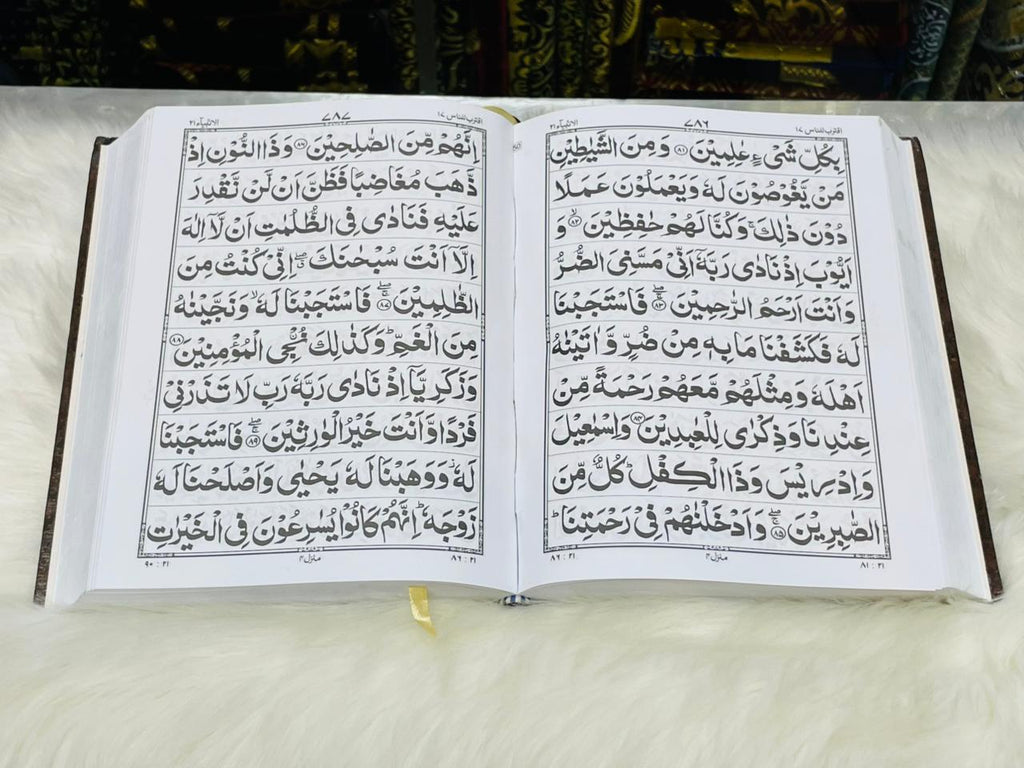 اقترب للناس ١٧
٧٨٦
الانبیآء ٢١
بِكُلِّ شَیْءٍ عٰلِمِیْنَ ﴿٨١﴾ وَ مِنَ الشَّیٰطِیْنِ
مَنْ یَّغُوْصُوْنَ لَهٗ وَ یَعْمَلُوْنَ عَمَلًا
دُوْنَ ذٰلِكَ ۚ وَ كُنَّا لَهُمْ حٰفِظِیْنَ ﴿٨٢﴾ۙ وَ
اَیُّوْبَ اِذْ نَادٰی رَبَّهٗۤ اَنِّیْ مَسَّنِیَ الضُّرُّ
وَ اَنْتَ اَرْحَمُ الرّٰحِمِیْنَ ﴿٨٣﴾ۚۖ فَاسْتَجَبْنَا
لَهٗ فَكَشَفْنَا مَا بِهٖ مِنْ ضُرٍّ وَّ اٰتَیْنٰهُ
اَهْلَهٗ وَ مِثْلَهُمْ مَّعَهُمْ رَحْمَةً مِّنْ
عِنْدِنَا وَ ذِكْرٰی لِلْعٰبِدِیْنَ ﴿٨٤﴾ وَ اِسْمٰعِیْلَ
وَ اِدْرِیْسَ وَ ذَا الْكِفْلِ ؕ كُلٌّ مِّنَ
الصّٰبِرِیْنَ ﴿٨٥﴾ۚۖ وَ اَدْخَلْنٰهُمْ فِیْ رَحْمَتِنَا ؕ
٨١ : ٢١
منزل ٤
٨٦ : ٢١
اقترب للناس ١٧
٧٨٧
الانبیآء ٢١
اِنَّهُمْ مِّنَ الصّٰلِحِیْنَ ﴿٨٦﴾ وَ ذَا النُّوْنِ اِذْ
ذَّهَبَ مُغَاضِبًا فَظَنَّ اَنْ لَّنْ نَّقْدِرَ
عَلَیْهِ فَنَادٰی فِی الظُّلُمٰتِ اَنْ لَّاۤ اِلٰهَ
اِلَّاۤ اَنْتَ سُبْحٰنَكَ ۖۗ اِنِّیْ كُنْتُ مِنَ
الظّٰلِمِیْنَ ﴿٨٧﴾ۚۖ فَاسْتَجَبْنَا لَهٗ ۙ وَ نَجَّیْنٰهُ
مِنَ الْغَمِّ ؕ وَ كَذٰلِكَ نُـْۨجِی الْمُؤْمِنِیْنَ ﴿٨٨﴾
وَ زَكَرِیَّاۤ اِذْ نَادٰی رَبَّهٗ رَبِّ لَا تَذَرْنِیْ
فَرْدًا وَّ اَنْتَ خَیْرُ الْوٰرِثِیْنَ ﴿٨٩﴾ۚۖ فَاسْتَجَبْنَا
لَهٗ ؗ وَ وَهَبْنَا لَهٗ یَحْیٰی وَ اَصْلَحْنَا لَهٗ
زَوْجَهٗ ؕ اِنَّهُمْ كَانُوْا یُسٰرِعُوْنَ فِی الْخَیْرٰتِ
٨٦ : ٢١
منزل ٤
٩٠ : ٢١